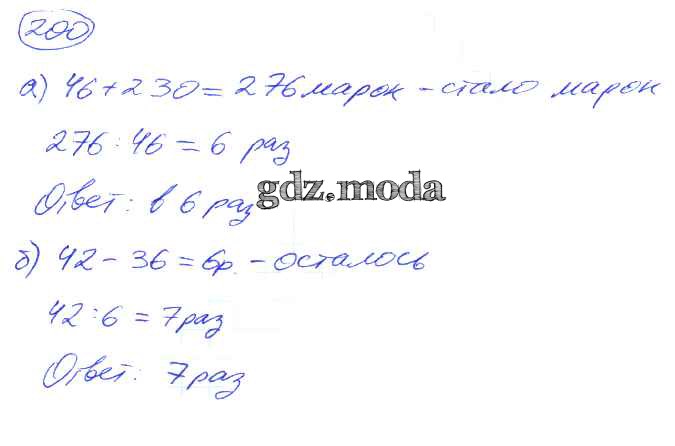 200
а) 46+230=276 марок - стало марок
276:46=6 раз
Ответ: в 6 раз
gdz.moda
б) 42-36=6р. - осталось
42:6=7 раз
Ответ: 7 раз